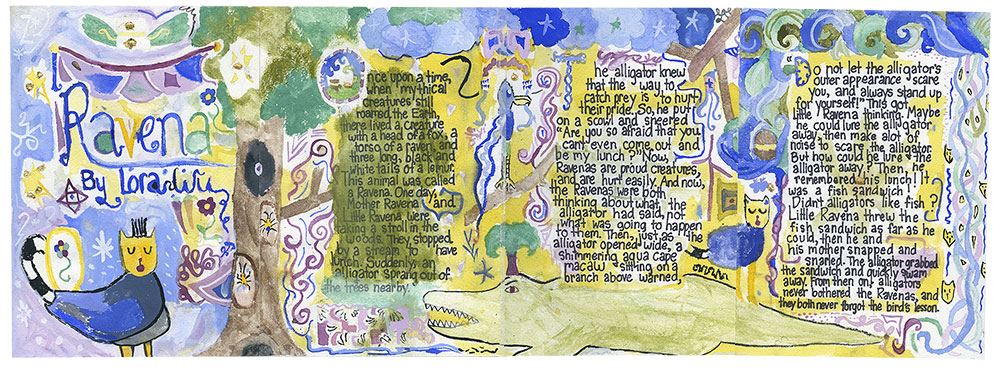 Ravena
By
Once upon a time,
when mythical
creatures still
roamed the Earth,
there lived a creature
with a head of a fox, a
torso of a raven, and
three long, black and
white tails of a lemur.
This animal was called
a Ravena. One day,
Mother Ravena and
Little Ravena were
taking a stroll in the
woods. They stopped
by a stream to have
lunch. Suddenly an
alligator sprang out of
the trees nearby.
The alligator knew
that the way to
catch prey is to hurt
their pride. So, he put
on a scowl and sneered
"Are you so afraid that you
can't even come out and
be my lunch?" Now,
Ravenas are proud creatures,
and are hurt easily. And now,
the Ravenas were both
thinking about what the
alligator had said, not
what was going to happen
to them. Then, just as the
alligator opened wide, a
shimmering aqua cape
macaw sitting on a
branch above warned,
"Do not let the alligator's
outer appearance scare
you, and always stand up
for yourself!" This got
little Ravena thinking. Maybe
he could lure the alligator
away, then make alot of
noise to scare the alligator.
But how could he lure the
alligator away? Then, he
remembered his lunch! It
was a fish sandwich!
Didn't alligators like fish?
Little Ravena threw the
fish sandwich as far as he
could, then he and
his mother snapped and
snarled. The alligator grabbed
the sandwich and quickly swam
away. From then on, alligators
never bothered the Ravenas, and
they both never forgot the bird's lesson.